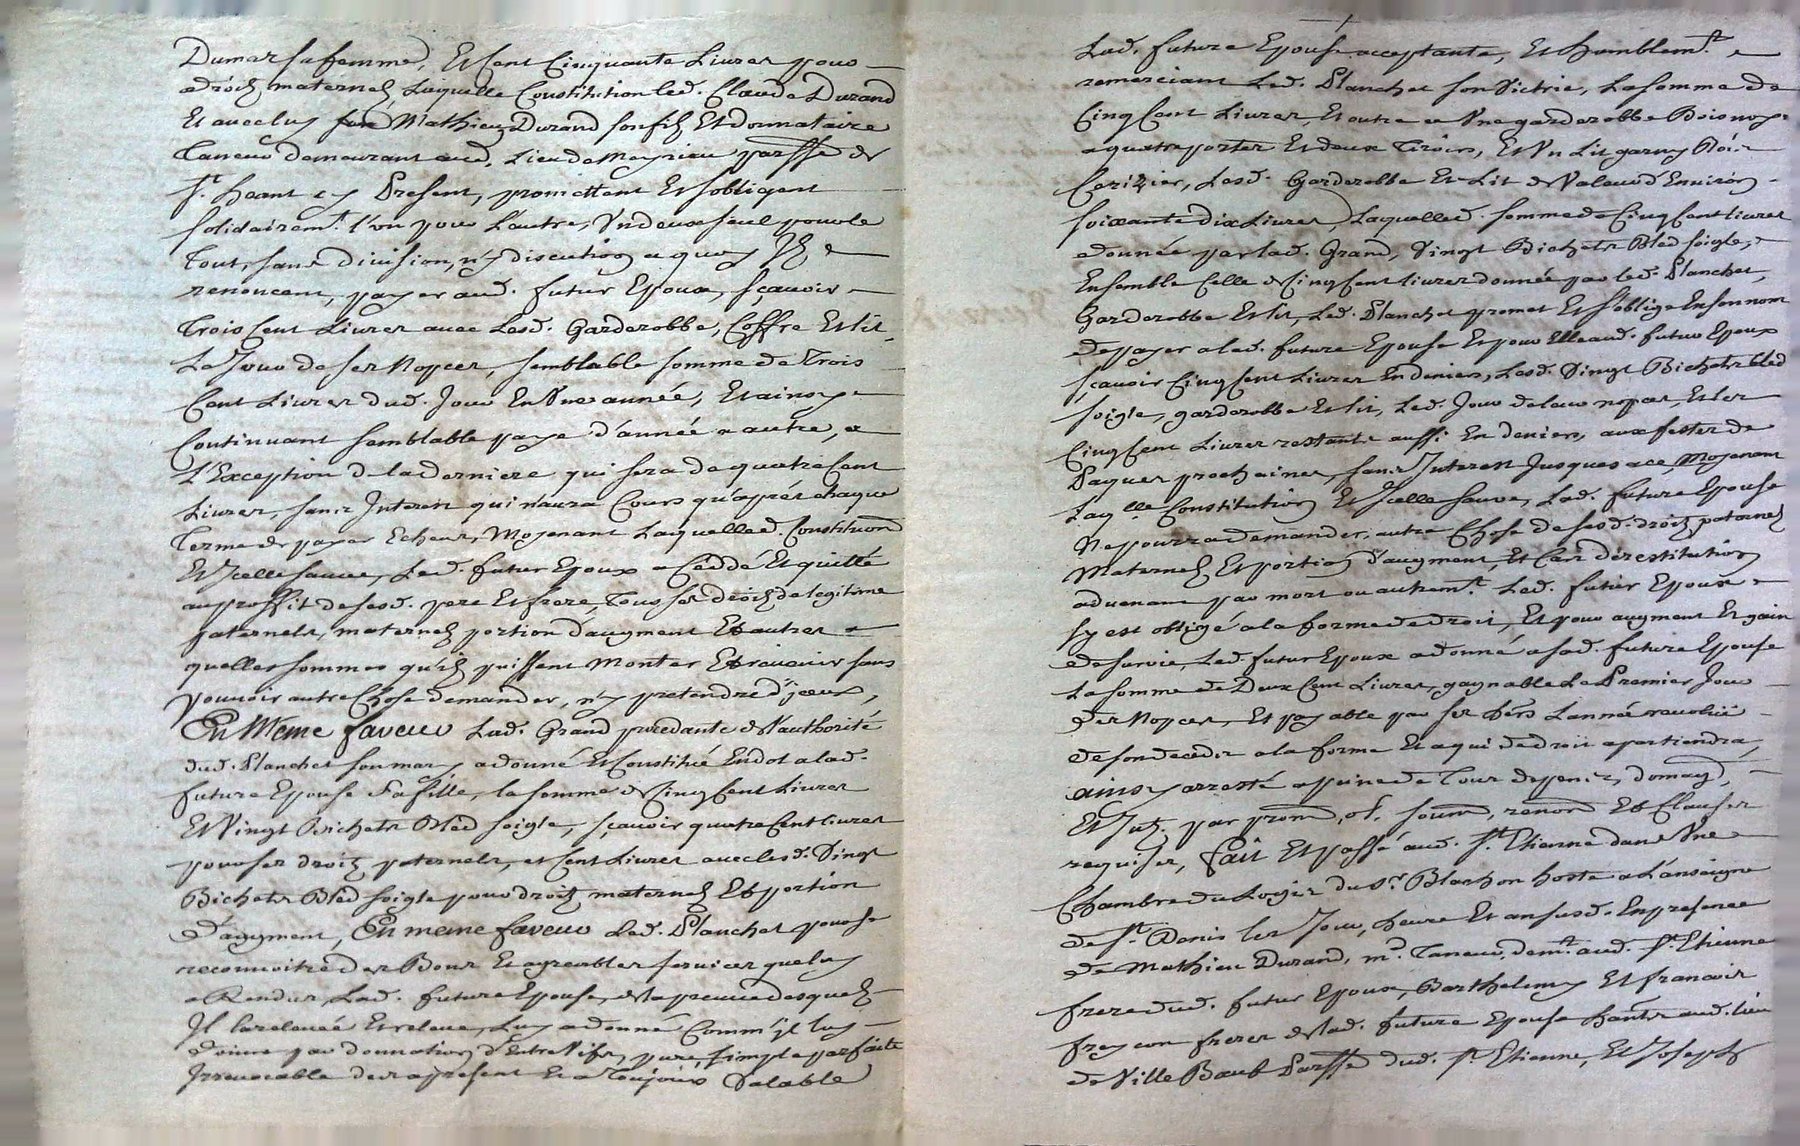 Dumas sa femme, Et Cent Cinquante Livres pour
droitz maternelz, Laquelle Constitution led. Claude Durand
Et avec luy Mathieu Durand son filz Et donnataire
Taneur demeurant aud. Lieu de Meyrieu parsse de
St. heant cy Present, promettent Et sobligent
solidairemt. l'un pour Lautre, Un deux seul pour le
Tout, sans division, ny discution a quoy Ilz
renoncent, payer aud. futur Epoux, sçavoir
Trois Cent Livres avec Lesd. Garderobbe, Coffre Et lit,
Le Jour de ses Nopces, semblable somme de Trois
Cent Livres dud. Jour En Une année, Et ainsy
Continuant semblable paye d'année a autre, a
L'Exception de la derniere qui sera de quatre Cent
Livres, sans Interest qui n'aura Cours qu'après chaque
Terme de payer Echeu, Moyenant Laquelle d. Constitution
Et Icelle sauve, Led. futur Epoux a Céddé Et quitté
au proffit de sesd. pere Et frere, Tous ses droitz de legitime
paternels, maternelz portion d'augment Et autres a
quelles sommes qu'ilz puissent Monter Et revenir sans
pouvoir autre Chose demander, n'y pretendre d'jceux,
En Meme faveur Lad. Grand procedante de l'authorité
dud. Planchet son mary a donné Et Constitué En dot a lad.
future Epouse sa fille, la somme de Cinq Cent Livres
Et Vingt Bichets Bled soigle, sçavoir quatre Cent livres
pour ses droitz paternels, et Cent Livres avec lesd. Vingt
Bichets Bled soigle pour droitz maternelz Et portion
d'augment, En meme faveur Led. Planchet pour se
reconnoitre des Bons Et agreables services que luy
a Rendus Lad. future Epouse, de la preuve desquelz
Il la relevée Et releve, Luy a donné Comm'jl luy
donne par donnation d'Entre Vifs, pure, simple parfaite
Irrevocable des a present Et a Toujours Valable
Lad. future Epouse acceptante, Et humblemt.
remerciant Led. Planchet son Victrie, La somme de
Cinq Cent Livres, Et outre ce Une garderobbe Bois noyer
a quatre portes Et deux Tiroirs, Et Un Lit garny Bois
Cerizier, Lesd. Garderobbe Et Lit de Valeur d'Environ
soixante dix Livres, Laquelle d. somme de Cinq Cent livres
donnée par lad. Grand, Vingt Bichets Bled soigle,
Ensemble Celle de Cinq Cent livres donnée par led. Planchet,
Garderobbe Et lit, Led. Planchet promet Et s'oblige En son nom
de payer a lad. future Epouse Et pour Elle aud. futur Epoux
sçavoir Cinq Cent Livres En deniers, Lesd. Vingt Bichets bled
soigle, garderobbe Et lit, Led. Jour de leur nopces, Et les
Cinq Cent Livres restante aussi En deniers, aux festes de
Paques prochaines, sans Interest Jusques a ce, Moyenant
Laqlle. Constitution Et Icelle sauve, Lad. future Epouse
Ne pourra demander, autre Chose de sesd. droitz paternelz
Maternelz Et portion d'augment, Et Cas de restitution
advenant par mort ou autremt. Led. futur Epoux
s'y est obligé a la forme de droit, Et pour augment Et gain
de survie, Led. futur Epoux a donné a sad. future Epouse
La somme de Deux Cent Livres, gagnable Le Premier Jour
des Nopces, Et payable par ses hérs L'année revoluë
de son decedz a la forme Et a qui de droit apartiendra,
ainsy arresté a peine de Tous depenz, domagz,
Et Intz. par prom, ob. soum, renon Et Clauses
requises, fait Et passé aud. St. Etienne dans Une
Chambre du Logis du Sr. Blachon hoste a L'anseigne
de St. Denis les Jour, heure Et an susd. En presence
de Mathieu Durand, md. Taneur, demt. aud. St. Etienne
frere dud. futur Epoux, Barthelemy Et francois
frereS de lad. future Epouse habts. aud. lieu
de Ville Bœuf Parsse dud. St. Etienne, Et Joseph